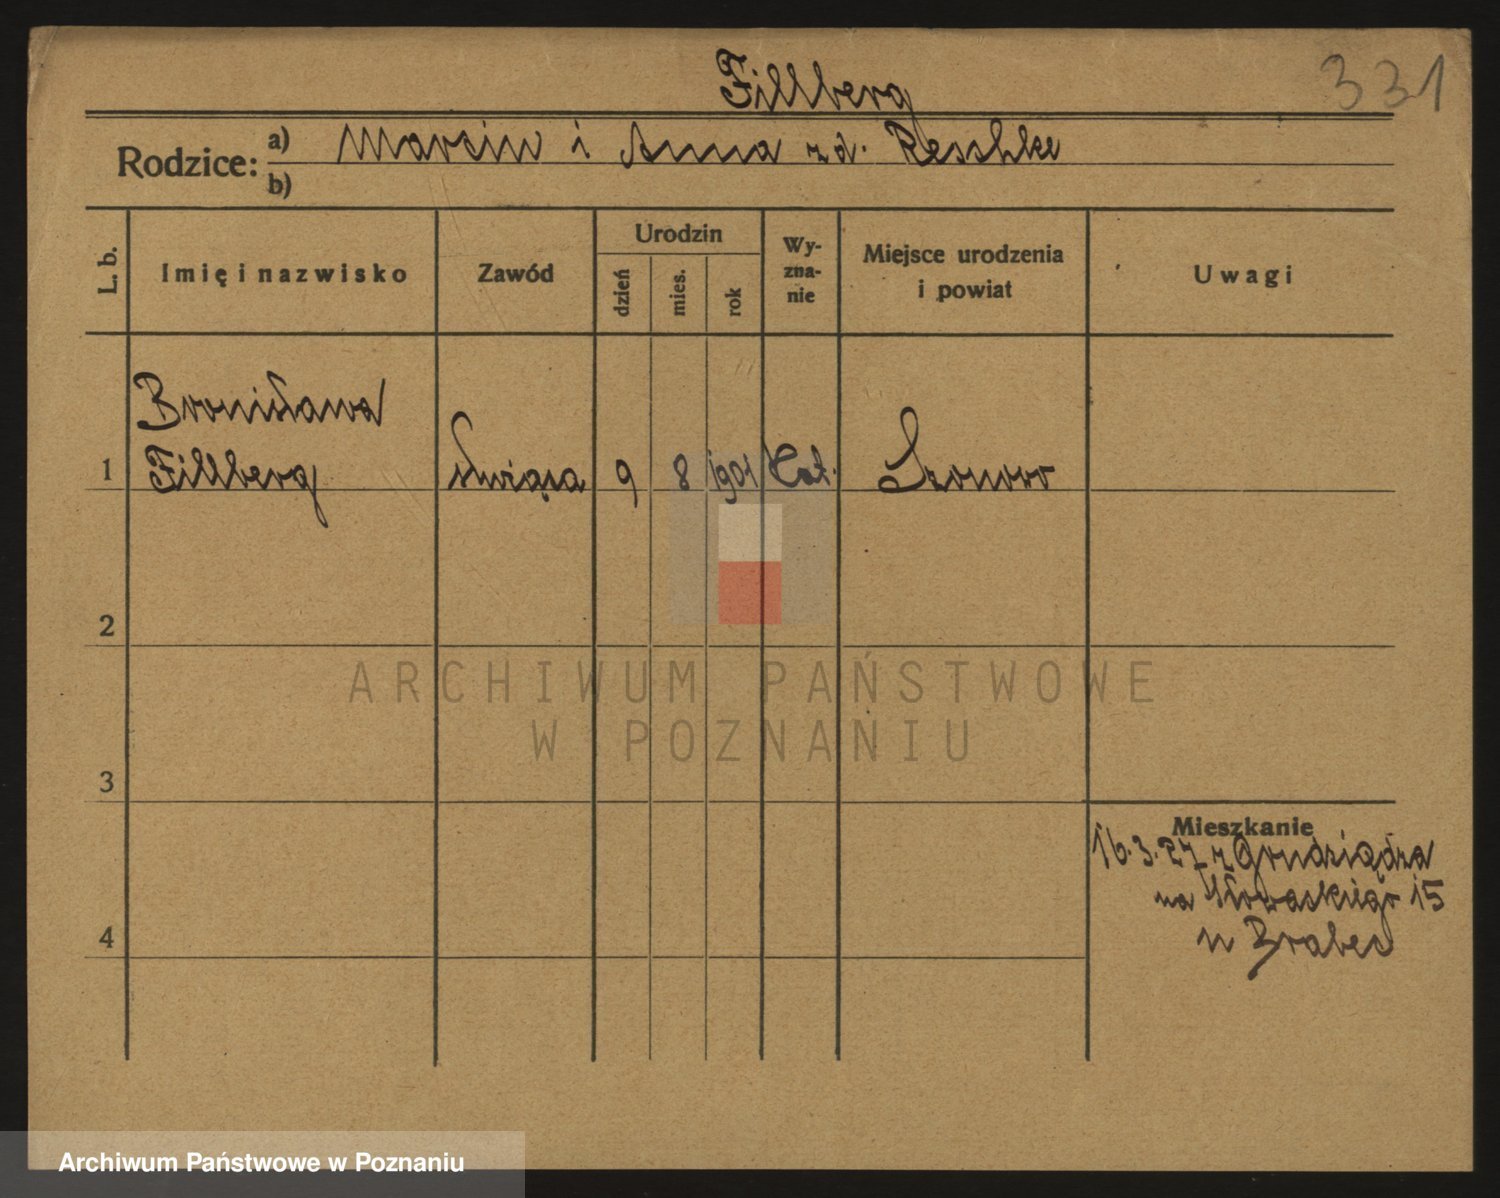 Fillberg
331
Rodzice: a) Marcin i Anna zd. Reschke
b)
L. b.
Imię i nazwisko
Zawód
Urodzin
dzień
mies.
rok
Wy-
zna-
nie
Miejsce urodzenia
i powiat
Uwagi
Bronisława
1 Fillberg służąca 9 8 1901 Kat.
2
ARCHIWUM PAŃSTWOWE
W POZNANIU
3
Mieszkanie
16.3.27 z Grudziądza
na Słowackiego 15
4
u
Archiwum Państwowe w Poznaniu